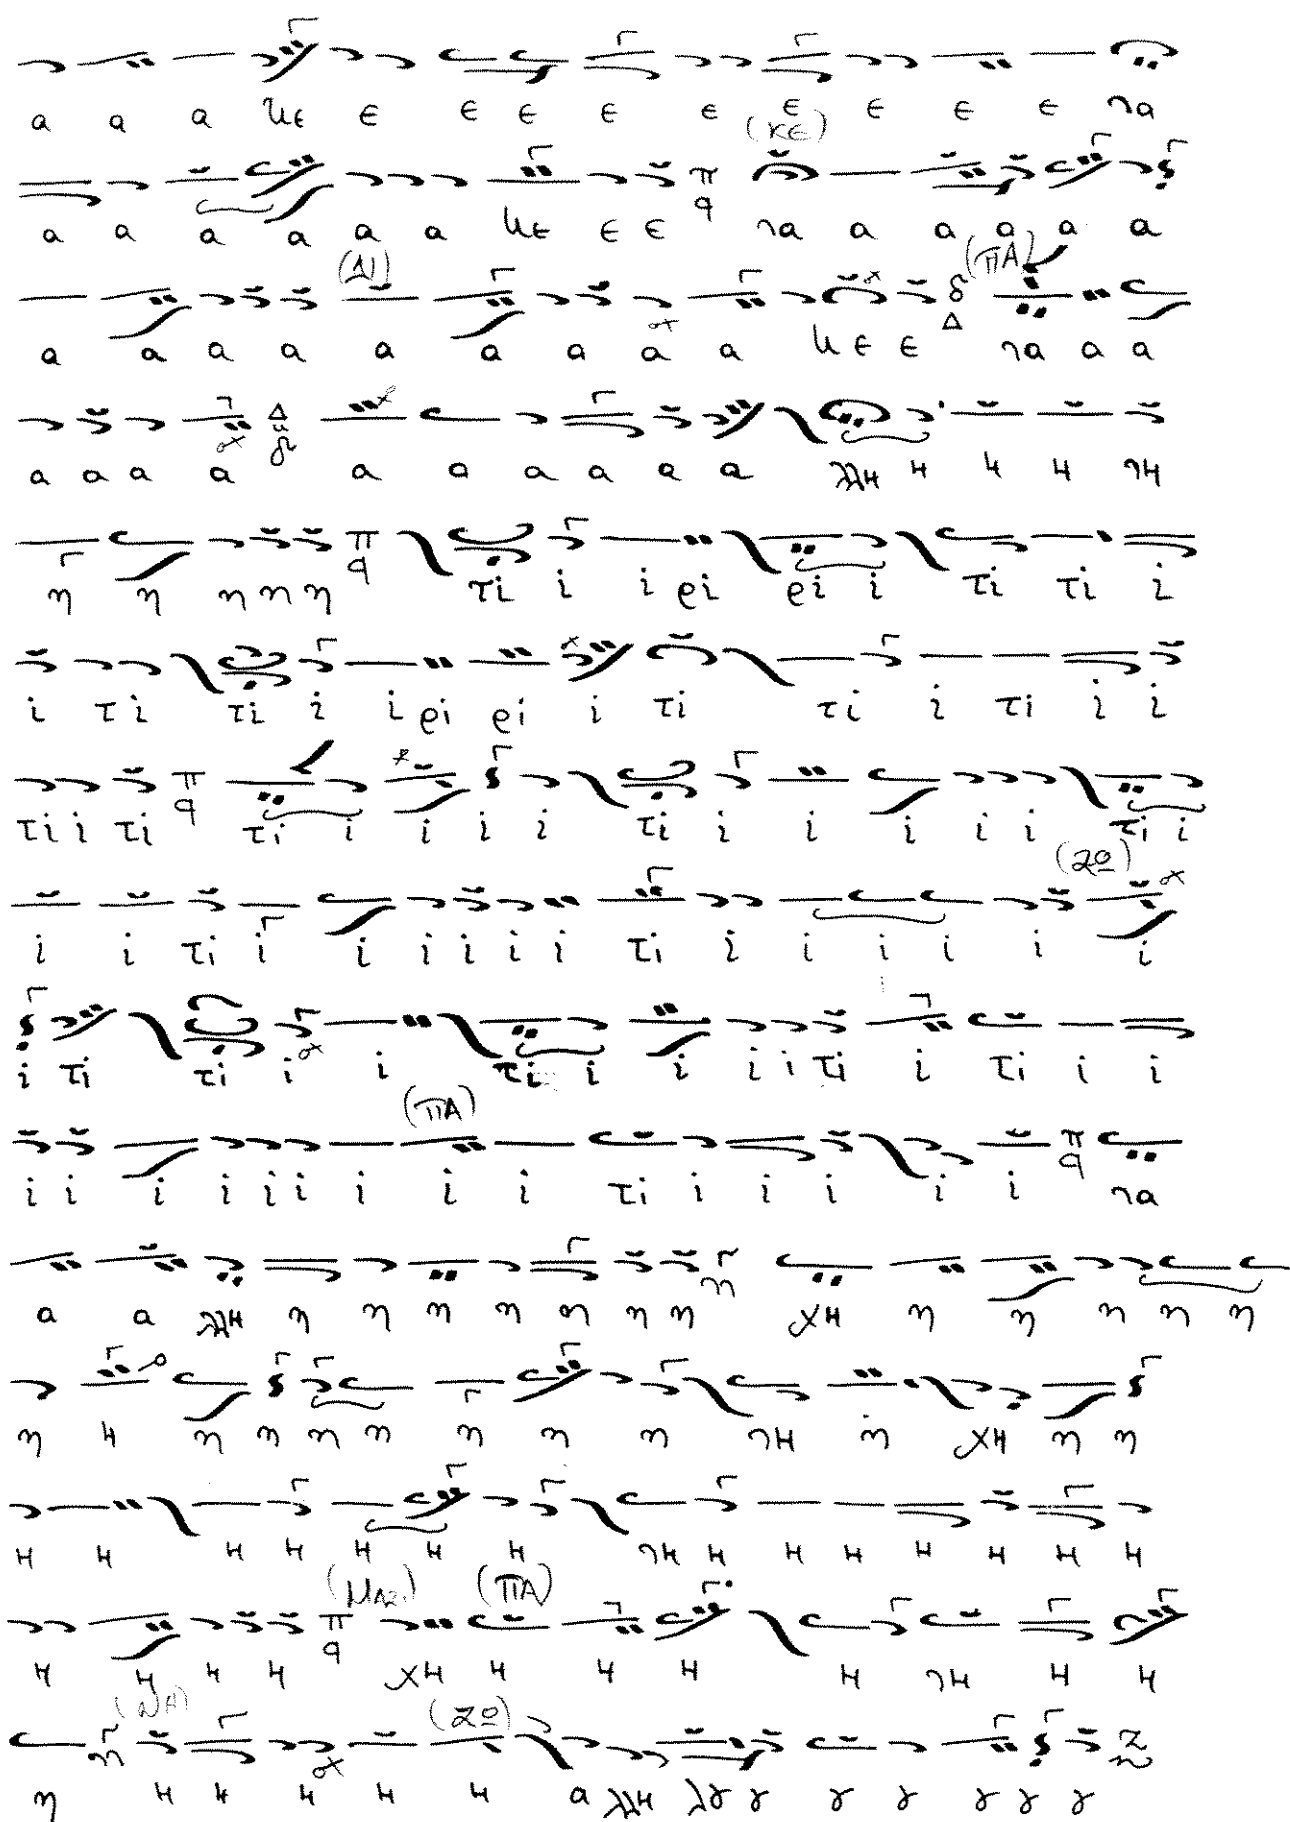 α α α νε ε ε ε ε ε ε ε ε ε να
(κε)
α α α α α α νε ε ε π q να α α α α α
(Δι) (πΑ)
α α α α α α α α α νε ε ε δ Δ να α α
α α α α Δ δ α α α α α α λλη η η η νη
η η η η η π q τι ι ι ρι ρι ι τι τι ι
ι τι ι τι ι ι ρι ρι ι τι τι ι τι ι ι
τι ι τι π q τι ι ι ι ι τι ι ι ι ι ι τι ι
(Ζω)
ι ι τι ι ι ι ι ι ι τι ι ι ι ι ι ι
ι τι τι ι ι τι ι ι ι ι τι ι τι ι ι
(πΑ)
ι ι ι ι ι ι ι ι ι τι ι ι ι ι ι π q να
α α λλη η η η η η η η χη η η η η η
η η η η η η η η η νη η χη η η
η η η η η η η νη η η η η η η η
(πΑ)
η η η η π q χη η η η η νη η η
(Νη) (Ζω)
η η η η η η α λλη λȣ ȣ ȣ ȣ ȣ ȣ ȣ Ζ